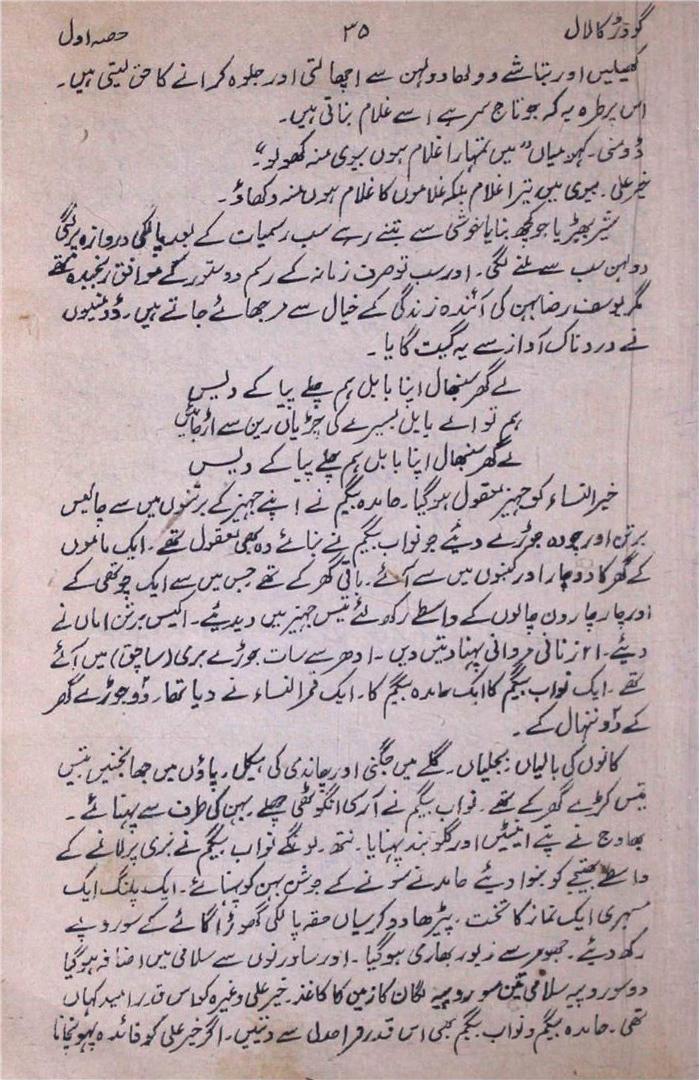 گودڑ کا لال ۳۵ حصہ اول
کھیلیں اور بتاشے دولھا دولہن سے اچھالتی اور جلوہ کرانے کا حق لیتی ہیں۔
اس پر طرہ یہ کہ جو تاج سر ہے اسے غلام بناتی ہیں۔
ڈومنی۔ کہن میاں "میں تمہارا غلام ہوں بیوی منہ کھولو"۔
خیر علی۔ بیوی میں تیرا غلام بلکہ غلاموں کا غلام ہوں منہ دکھاؤ۔
شیر بھیڑیا جو کچھ بنایا خوشی سے بنتے رہے سب رسمیات کے بعد پالکی دروازہ پر لگی
دولہن سب سے ملنے لگی۔ اور سب تو صرف زمانہ کے رسم و دستور کے موافق رنجیدہ تھے
مگر یوسف رضا بہن کی آئندہ زندگی کے خیال سے مرجھائے جاتے ہیں۔ ڈومنیوں
نے دردناک آواز سے یہ گیت گایا۔
لے گھر سنبھال اپنا بابل ہم چلے پیا کے دیس
ہم تو اے بابل بسیرے کی چڑیاں رین سے اڑ جائیں
لے گھر سنبھال اپنا بابل ہم چلے پیا کے دیس
خیر النساء کو جہیز معقول ہوگیا۔ حامدہ بیگم نے اپنے جہیز کے برتنوں میں سے چالیس
برتن اور چودہ جوڑے دیئے جو نواب بیگم نے بنائے وہ بھی معقول تھے۔ ایک ماموں
کے گھر کا دو چار اور کنبوں میں سے آئے۔ باقی گھر کے تھے جس میں سے ایک چوتھی کے
اور چار چار ون چالوں کے واسطے رکھ لئے تیس جہیز میں دیدیئے۔ اکیس برتن اماں نے
دیئے۔ ۱۲ زنانی مردانی پہناوتیں دیں۔ ادھر سے سات جوڑے بری (ساچق) میں آئے
تھے۔ ایک نواب بیگم کا ایک حامدہ بیگم کا۔ ایک قمر النساء نے دیا تھا۔ دو جوڑے گھر
کے دو ننہال کے۔
کانوں کی بالیاں بجلیاں۔ گلے میں جگنی اور چاندی کی ہیکل۔ پاؤں میں جھانجنیں تیس
تیس کڑے گھر کے تھے۔ نواب بیگم نے آرسی انگوٹھی چھلے۔ بہن کی طرف سے پہنائے۔
بھاوج نے پتے انیٹیں اور گلوبند پہنایا۔ نتھ۔ لونگے نواب بیگم نے بری پر لانے کے
واسطے بھتیجے کو بنوا دیئے حامد نے سونے کے جوشن بہن کو پہنائے۔ ایک پلنگ ایک
مسہری ایک نماز کا تخت۔ پیڑھا دو کرسیاں حقہ پالکی گھوڑا گائے کے سو روپے
رکھ دیئے۔ جھومر سے زیور بھاری ہوگیا۔ اور ساورنوں سے سلامی میں اضافہ ہوگیا
دو سو روپیہ سلامی تین سو روپیہ لگان کا زمین کا کاغذ۔ خیر علی وغیرہ کو اس قدر امید کہاں
تھی۔ حامدہ بیگم و نواب بیگم بھی اس قدر فراخدلی سے دیتیں۔ اگر خیر علی کو فائدہ پہونچانا